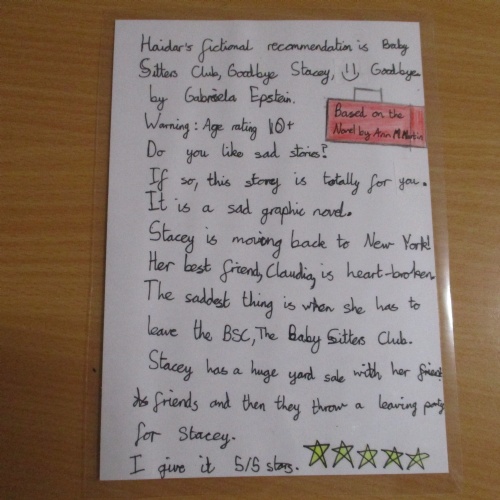 Haidar's fictional recommendation is Baby
Sitters Club, Goodbye Stacey, Goodbye
by Gabriela Epstein.
Based on the
Novel by Ann M Martin
Warning: Age rating 10+
Do you like sad stories?
If so, this story is totally for you.
It is a sad graphic novel.
Stacey is moving back to New York!
Her best friend, Claudia, is heart-broken.
The saddest thing is when she has to
leave the BSC, The Baby Sitters Club.
Stacey has a huge yard sale with her
friends and then they throw a leaving party
for Stacey.
I give it 5/5 stars.